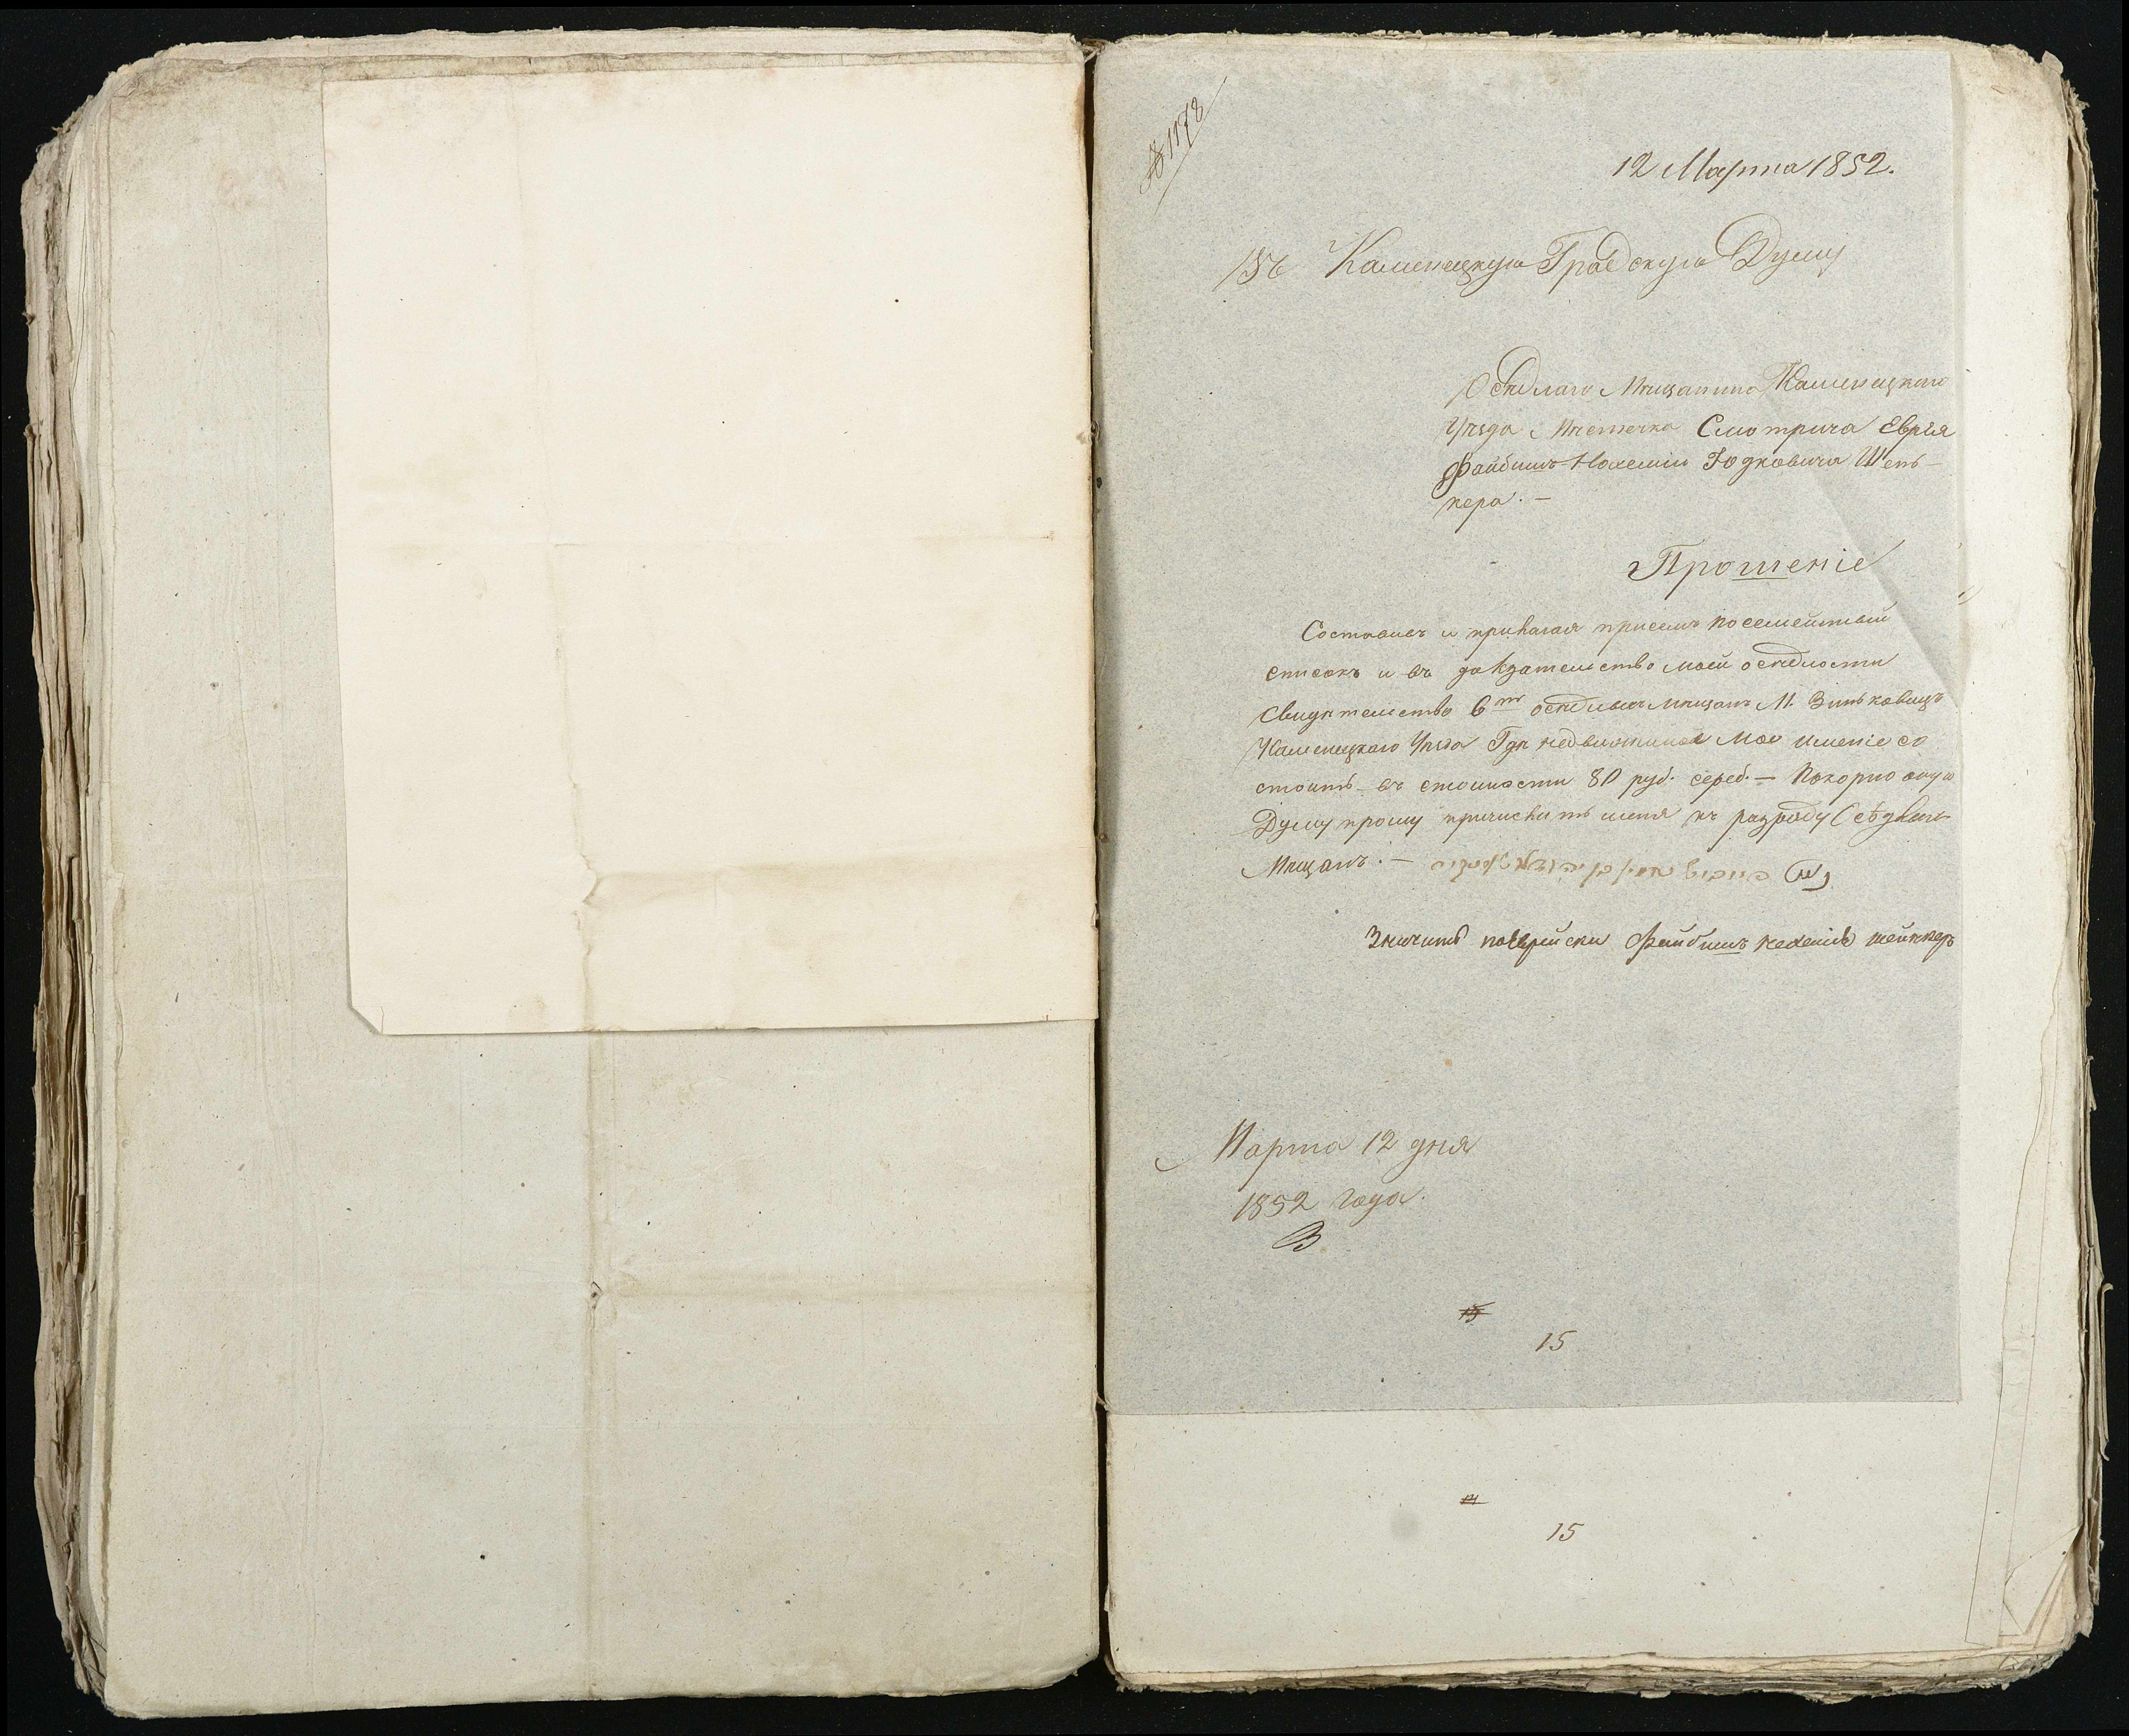 № 1178
12 Марта 1852.
Въ Каменецкую Градскую Думу
Осѣдлаго Мѣщанина Каменецкаго
Уѣзда Мѣстечка Смотрича Еврея
Файбишъ Нохемiи Iодковича Шень-
кера. —
Прошенiе
Составивъ и прилагая присемъ посемейный
списокъ и въ доказательство моей осѣдлости
Свидѣтельство 6ти осѣдлыхъ мѣщанъ М. Зиньковецъ
Каменецкаго Уѣзда Гдѣ недвижимое Мое имѣнiе со
стоитъ въ стоимости 80 руб. сереб. — Покорно оную
Думу прошу причислить меня къ разряду
Мѣщанъ. —
Значитъ поеврейски Файбишъ шейнкеръ
Марта 12 дня
1852 года
15
15